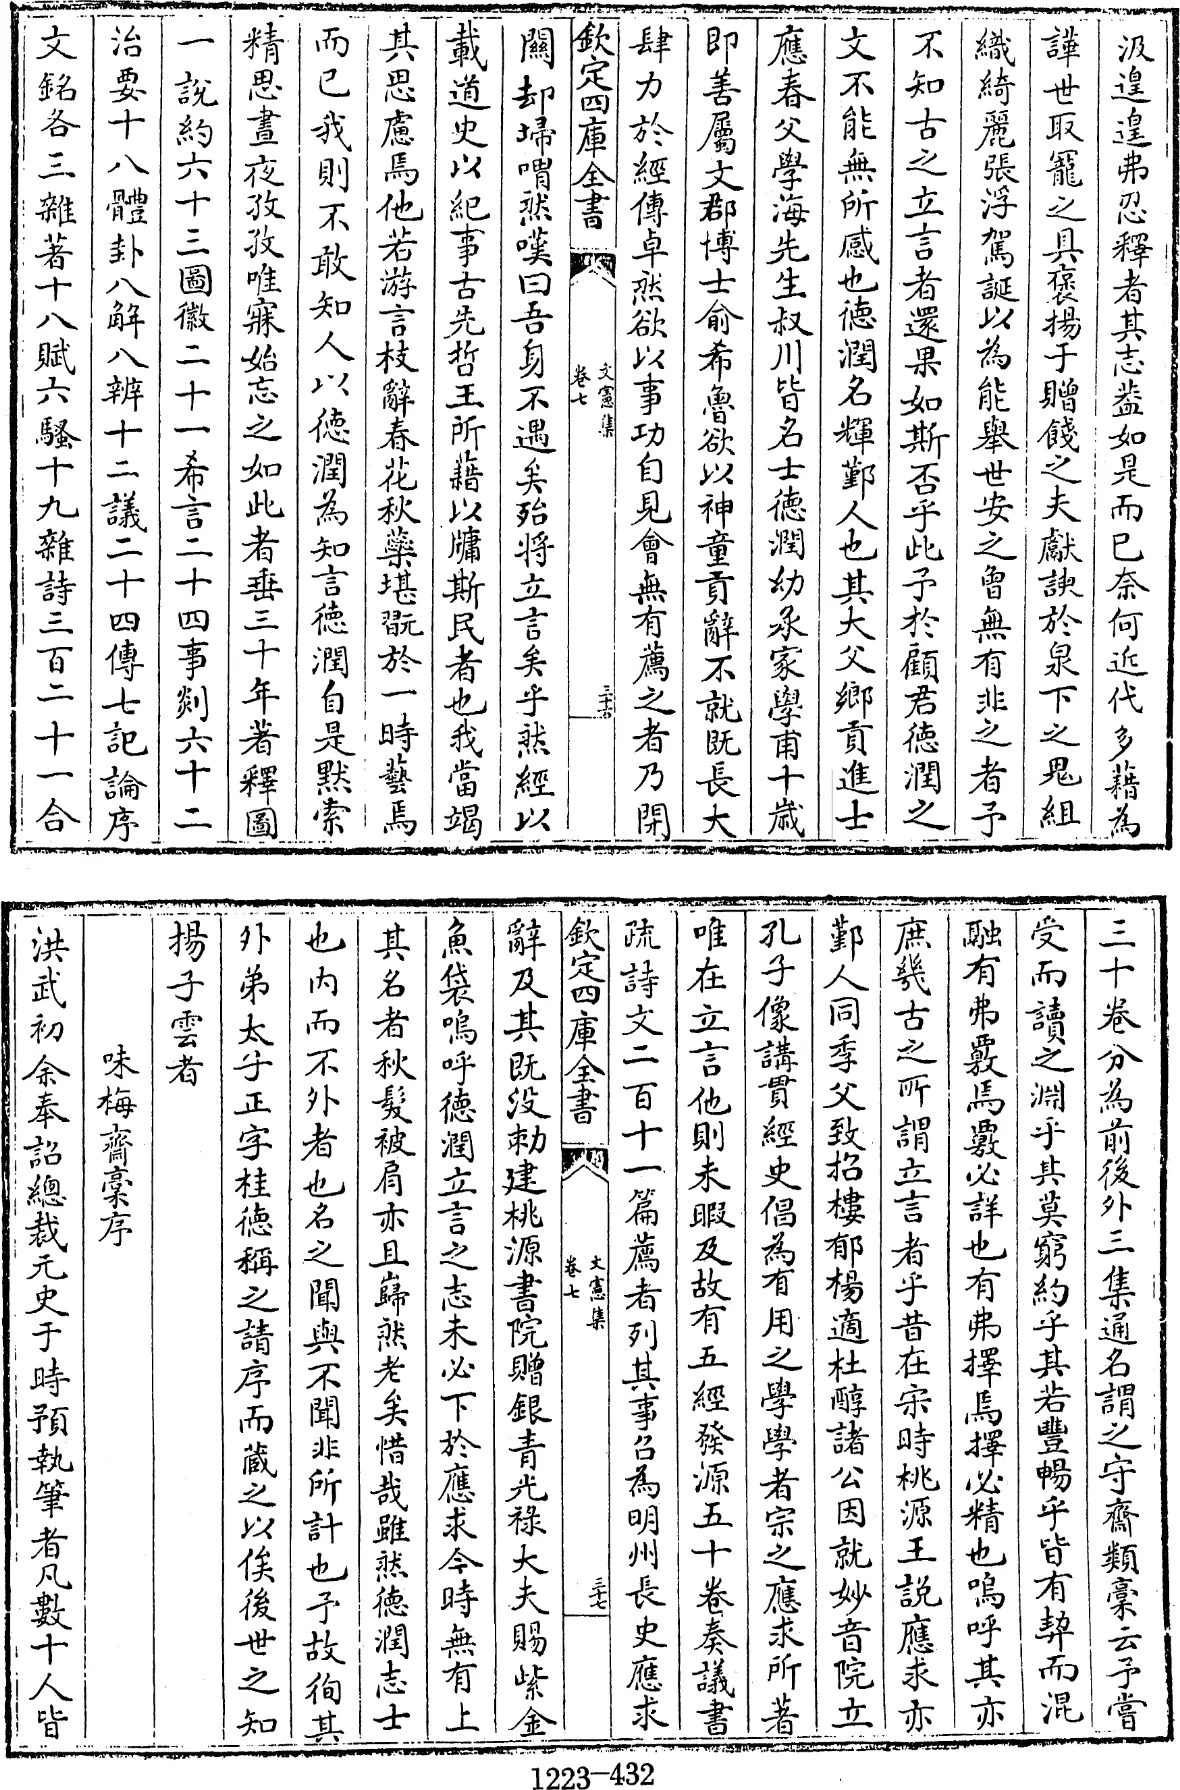 汲遑遑弗忍釋者其志葢如是而已奈何近代多藉為
譁世取寵之具褒揚于贈餞之夫獻諛於泉下之鬼組
織綺麗張浮駕誕以為能舉世安之曾無有非之者予
不知古之立言者還果如斯否乎此予於顧君徳潤之
文不能無所感也徳潤名輝鄞人也其大父鄉貢進士
應春父學海先生叔川皆名士徳潤幼承家學甫十歳
即善屬文郡博士俞希魯欲以神童貢辭不就既長大
肆力於經傳卓然欲以事功自見會無有薦之者乃閉
欽定四庫全書
文憲集
卷七
三十六
關却埽喟然嘆曰吾身不遇矣殆将立言矣乎然經以
載道史以紀事古先哲王所藉以牖斯民者也我當竭
其思慮焉他若游言枝辭春花秋蘂堪翫於一時藝焉
而已我則不敢知人以徳潤為知言徳潤自是黙索
精思晝夜孜孜唯寐始忘之如此者垂三十年著釋圖
一說約六十三圖徽二十一希言二十四事剡六十二
治要十八體卦八解八辨十二議二十四傳七記論序
文銘各三雜著十八賦六騷十九雜詩三百二十一合
三十卷分為前後外三集通名謂之守齋類稾云予嘗
受而讀之淵乎其莫窮約乎其若豐暢乎皆有契而混
融有弗覈焉覈必詳也有弗擇焉擇必精也嗚呼其亦
庶幾古之所謂立言者乎昔在宋時桃源王說應求亦
鄞人同季父致招樓郁楊適杜醇諸公因就妙音院立
孔子像講貫經史倡為有用之學學者宗之應求所著
唯在立言他則未暇及故有五經發源五十卷奏議書
疏詩文二百十一篇薦者列其事召為明州長史應求
欽定四庫全書
文憲集
卷七
三十七
辭及其既没勅建桃源書院贈銀青光祿大夫賜紫金
魚袋嗚呼徳潤立言之志未必下於應求今時無有上
其名者秋髮被肩亦且巋然老矣惜哉雖然徳潤志士
也内而不外者也名之聞與不聞非所計也予故徇其
外弟太子正字桂徳稱之請序而藏之以俟後世之知
揚子雲者
味梅齋稾序
洪武初余奉詔總裁元史于時預執筆者凡數十人皆
1223-432